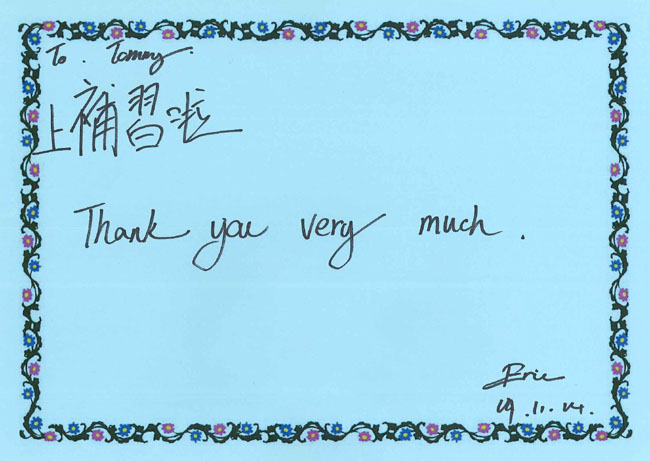 To. Tommy.
上補習啦
Thank you very much.
Eric
19.11.14.